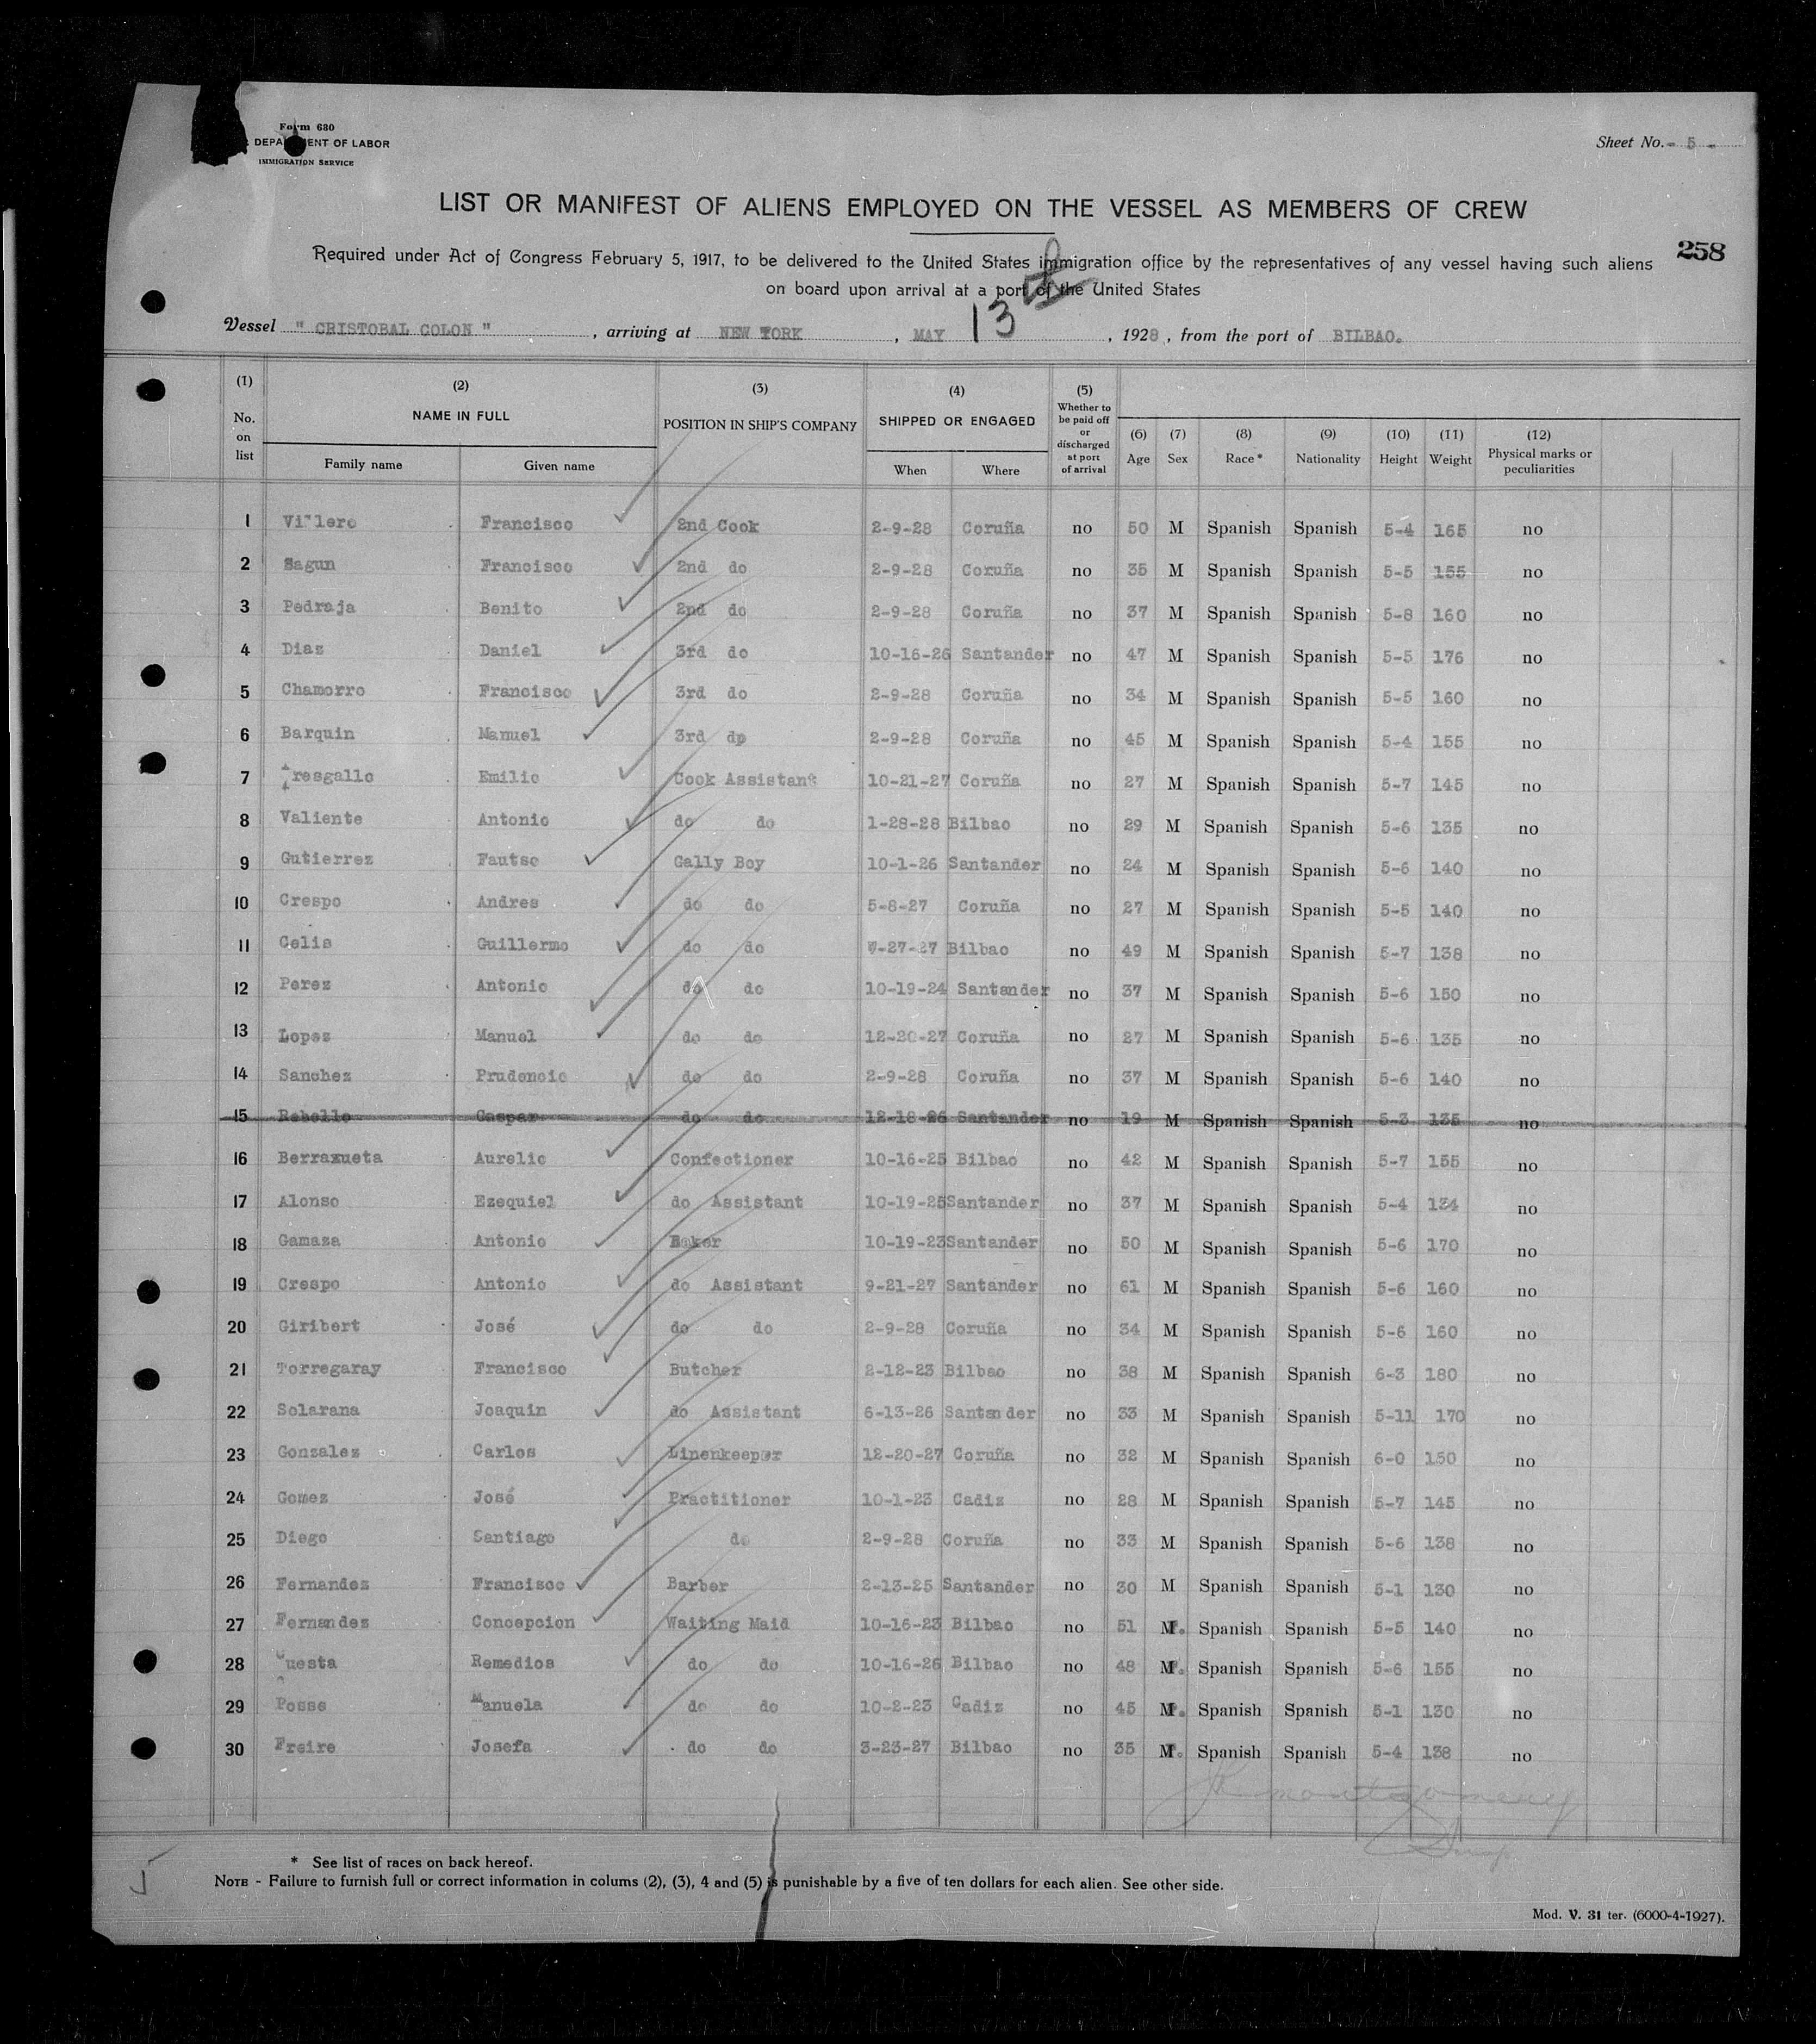 Form 680
DEPARTMENT OF LABOR
IMMIGRATION SERVICE
Sheet No. - 5 -
LIST OR MANIFEST OF ALIENS EMPLOYED ON THE VESSEL AS MEMBERS OF CREW
258
Required under Act of Congress February 5, 1917, to be delivered to the United States immigration office by the representatives of any vessel having such aliens
on board upon arrival at a port of the United States
Vessel " CRISTOBAL COLON " , arriving at NEW YORK , MAY 13th , 1928 , from the port of BILBAO.
(1) No. on list (2) NAME IN FULL Family name Given name (3) POSITION IN SHIP'S COMPANY (4) SHIPPED OR ENGAGED When Where (5) Whether to be paid off or discharged at port of arrival (6) Age (7) Sex (8) Race * (9) Nationality (10) Height (11) Weight (12) Physical marks or peculiarities
1 Villero Francisco 2nd Cook 2-9-28 Coruña no 50 M Spanish Spanish 5-4 165 no
2 Sagun Francisco 2nd do 2-9-28 Coruña no 35 M Spanish Spanish 5-5 155 no
3 Pedraja Benito 2nd do 2-9-28 Coruña no 37 M Spanish Spanish 5-8 160 no
4 Diaz Daniel 3rd do 10-16-26 Santander no 47 M Spanish Spanish 5-5 176 no
5 Chamorro Francisco 3rd do 2-9-28 Coruña no 34 M Spanish Spanish 5-5 160 no
6 Barquin Manuel 3rd dp 2-9-28 Coruña no 45 M Spanish Spanish 5-4 155 no
7 Tresgallo Emilio Cook Assistant 10-21-27 Coruña no 27 M Spanish Spanish 5-7 145 no
8 Valiente Antonio do do 1-28-28 Bilbao no 29 M Spanish Spanish 5-6 135 no
9 Gutierrez Fautso Gally Boy 10-1-26 Santander no 24 M Spanish Spanish 5-6 140 no
10 Crespo Andres do do 5-8-27 Coruña no 27 M Spanish Spanish 5-5 140 no
11 Celis Guillermo do do 7-27-27 Bilbao no 49 M Spanish Spanish 5-7 138 no
12 Perez Antonio do do 10-19-24 Santander no 37 M Spanish Spanish 5-6 150 no
13 Lopez Manuel do do 12-20-27 Coruña no 27 M Spanish Spanish 5-6 135 no
14 Sanchez Prudencio do do 2-9-28 Coruña no 37 M Spanish Spanish 5-6 140 no
15 Rebollo Gaspar do do 12-18-26 Santander no 19 M Spanish Spanish 5-3 135 no
16 Berraxueta Aurelio Confectioner 10-16-25 Bilbao no 42 M Spanish Spanish 5-7 155 no
17 Alonso Ezequiel do Assistant 10-19-25 Santander no 37 M Spanish Spanish 5-4 134 no
18 Gamaza Antonio Baker 10-19-23 Santander no 50 M Spanish Spanish 5-6 170 no
19 Crespo Antonio do Assistant 9-21-27 Santander no 61 M Spanish Spanish 5-6 160 no
20 Giribert José do do 2-9-28 Coruña no 34 M Spanish Spanish 5-6 160 no
21 Torregaray Francisco Butcher 2-12-23 Bilbao no 38 M Spanish Spanish 6-3 180 no
22 Solarana Joaquin do Assistant 6-13-26 Santander no 33 M Spanish Spanish 5-11 170 no
23 Gonzalez Carlos Linenkeeper 12-20-27 Coruña no 32 M Spanish Spanish 6-0 150 no
24 Gomez José Practitioner 10-1-23 Cadiz no 28 M Spanish Spanish 5-7 145 no
25 Diego Santiago do 2-9-28 Coruña no 33 M Spanish Spanish 5-6 138 no
26 Fernandez Francisco Barber 2-13-25 Santander no 30 M Spanish Spanish 5-1 130 no
27 Fernandez Concepcion Waiting Maid 10-16-23 Bilbao no 51 F. Spanish Spanish 5-5 140 no
28 Cuesta Remedios do do 10-16-26 Bilbao no 48 F. Spanish Spanish 5-6 155 no
29 Posse Manuela do do 10-2-23 Cadiz no 45 F. Spanish Spanish 5-1 130 no
30 Freire Josefa do do 3-23-27 Bilbao no 35 F. Spanish Spanish 5-4 138 no
* See list of races on back hereof.
NOTE - Failure to furnish full or correct information in colums (2), (3), 4 and (5) is punishable by a five of ten dollars for each alien. See other side.
5
Mod. V. 31 ter. (6000-4-1927).